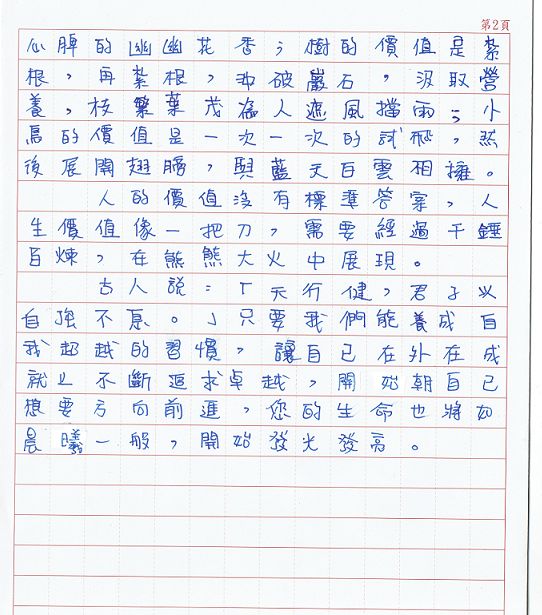 第2頁
心脾的幽幽花香；樹的價值是紮
根，再紮根，沖破巖石，汲取營
養，枝繁葉茂為人遮風擋雨；小
鳥的價值是一次一次的試飛，然
後展開翅膀，與藍天白雲相擁。
人的價值沒有標準答案，人
生價值像一把刀，需要經過千錘
百煉，在熊熊大火中展現。
古人說：「天行健，君子以
自強不息。」只要我們能養成自
我超越的習慣，讓自己在外在成
就上不斷追求卓越，開始朝自己
想要方向前進，您的生命也將如
晨曦一般，開始發光發高。